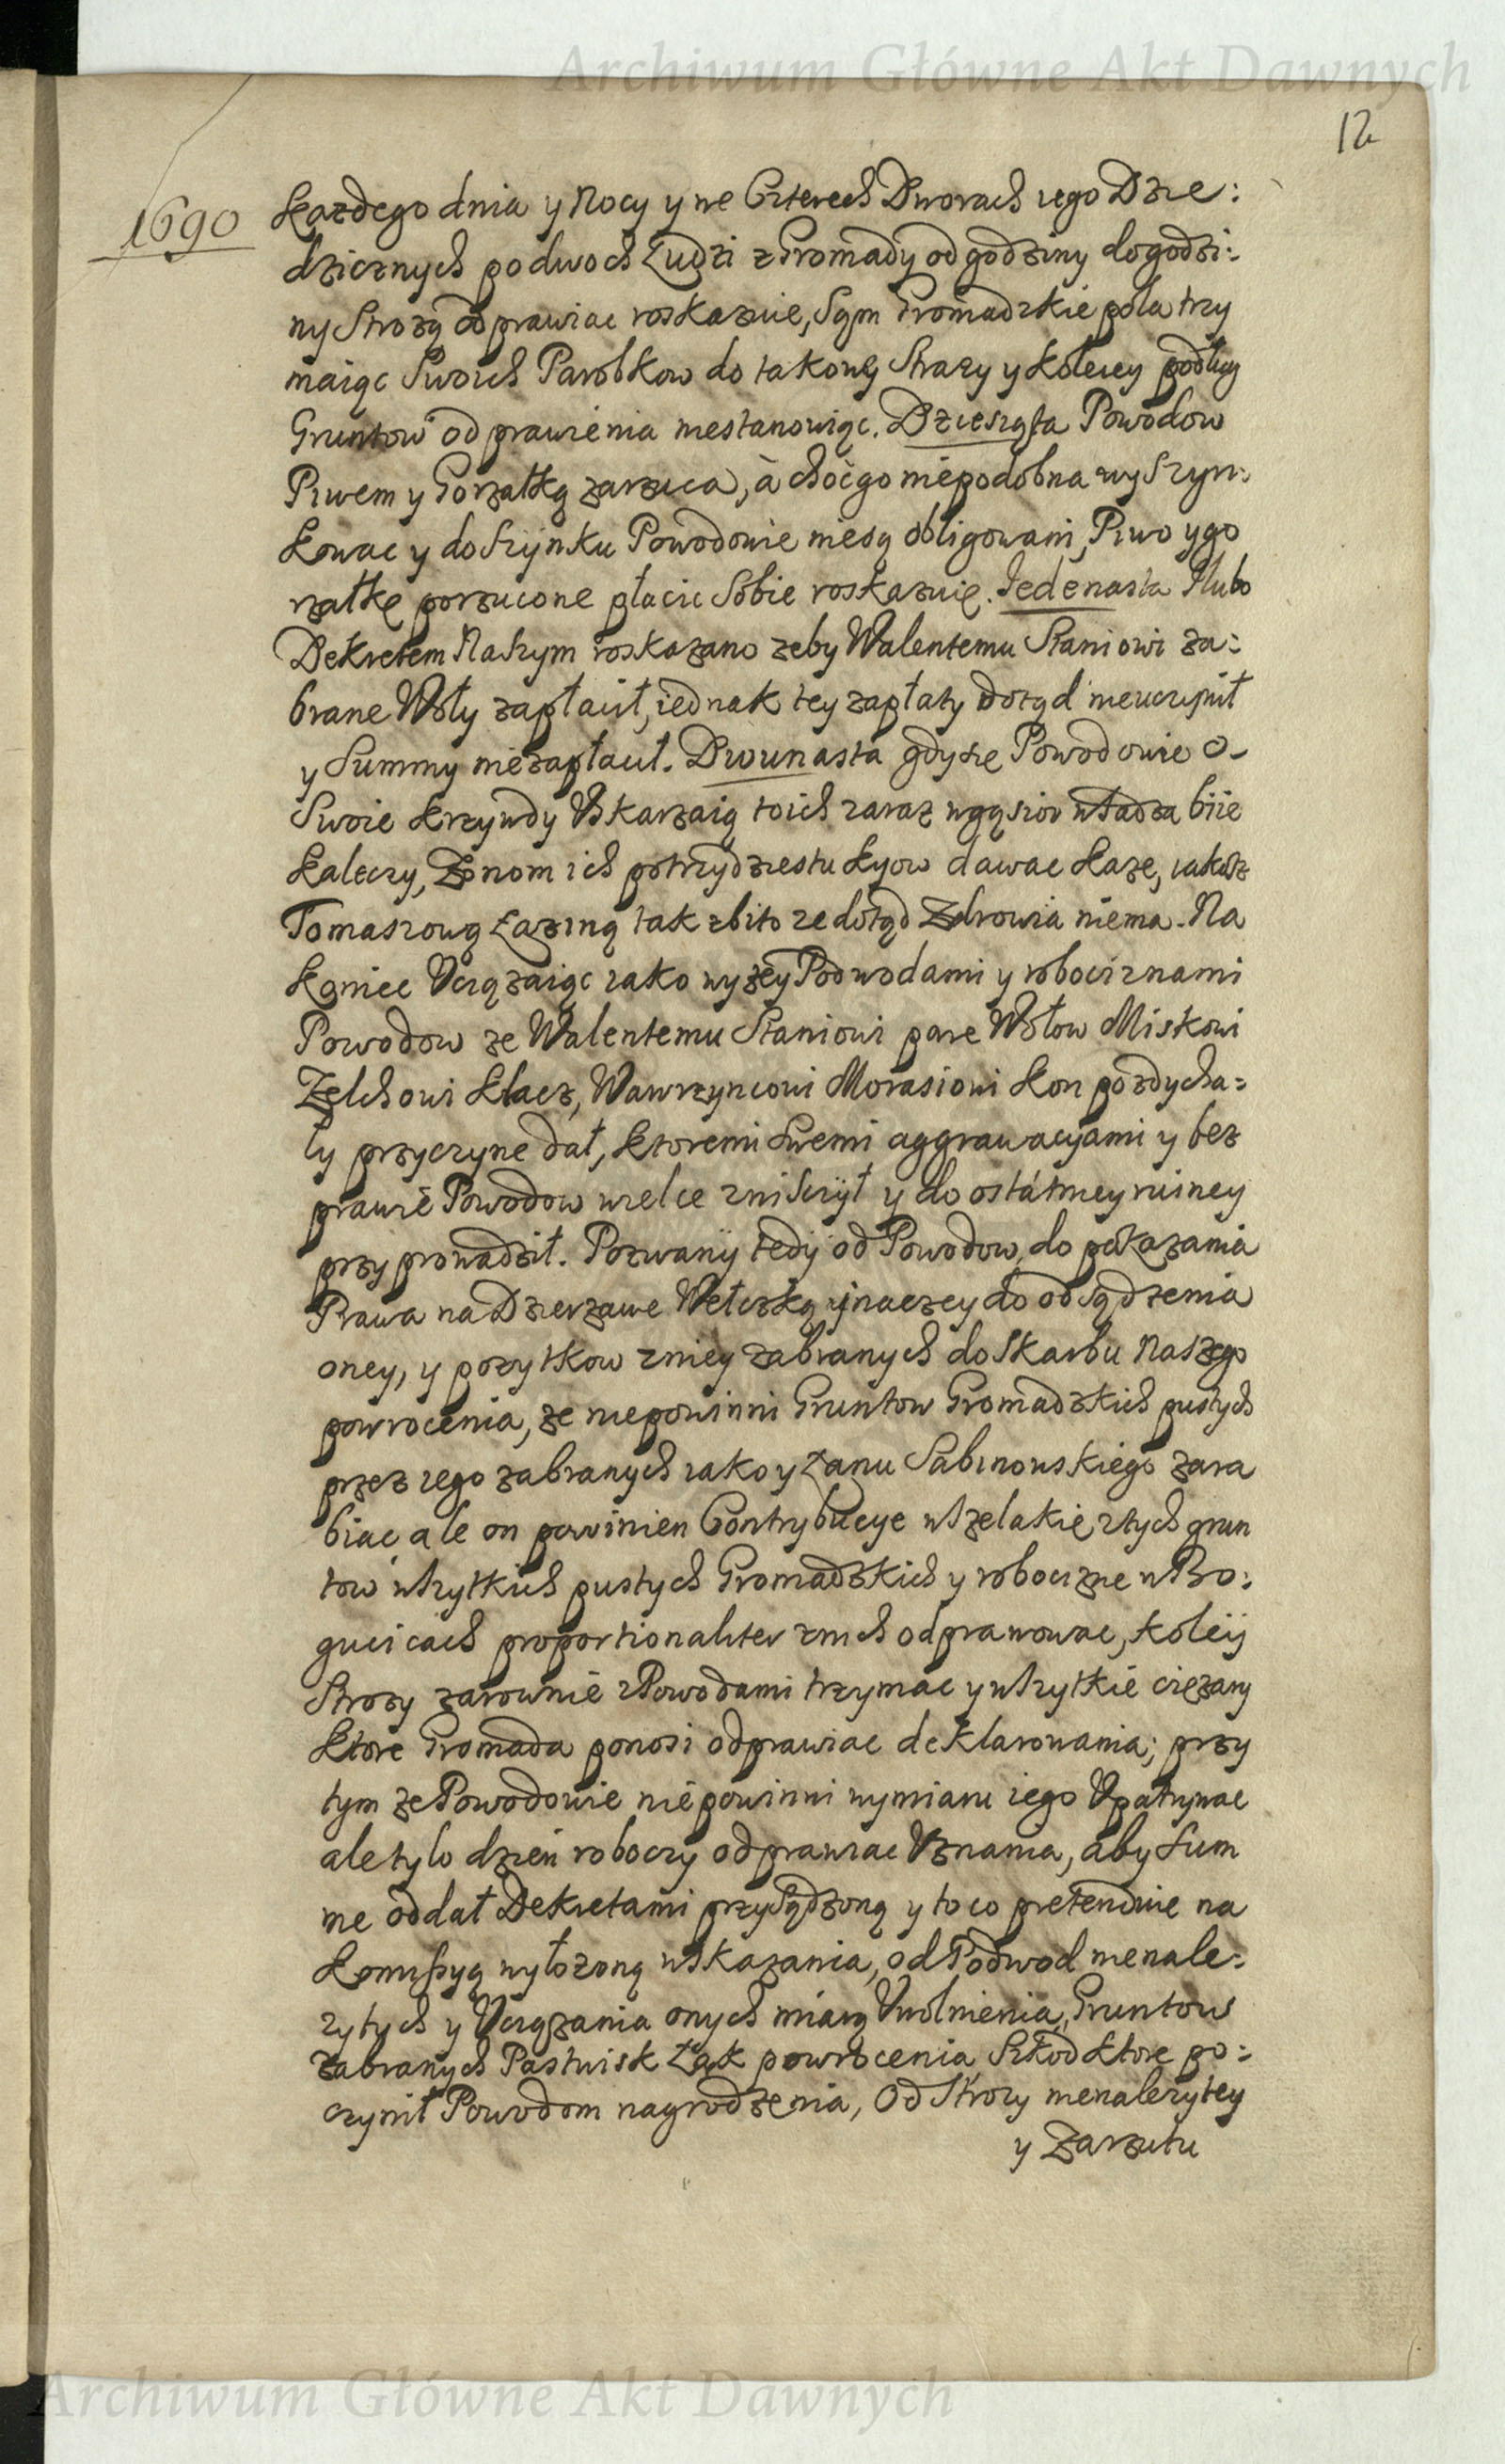 Archiwum Główne Akt Dawnych
12
1690
każdego dnia y Nocy y we Czterech Dworach iego Dzie:
dzicznych podwoch Ludzi z Gromady od godziny dogodzi:
ny Strozą odprawiac roskazuie, Sąm Gromadzkie pola trzy
maiąc Swoich Parobkow do takowey Strazy y kolecey podług
Gruntow odprawienia niestanowiąc. Dziesiąta Powodow
Piwem y Gorzałką zarzuca, à choc go niepodobna wyszyn:
kowac y do Szynku Powodowie niesą obligowani, Piwo y go
rzałkę porzucone płacic Sobie roskazuię. Jedenasta Ilubo
Dekretem Naszym roskazano zeby Walentemu Staniowi za:
brane Woły zapłacił, iednak tey zapłaty dotąd nieuczynił
y Summy niezapłacił. Dwunasta gdy się Powodowie o
Swoie krzywdy Uskarzaią to ich zaraz w gąsior wsadza biie
kaleczy, Zonom ich po trzydziestu kyow dawac kaze, iakosz
Tomaszową Łaziną tak zbito ze dotąd Zdrowia niema. Na
koniec Uciązaiąc iako wyzey Podwodami y robociznami
Powodow ze Walentemu Staniowi pare Wołow Miskowi
Zelchowi klacz, Wawrzyncowi Morasiowi kon pozdycha:
ły przyczyne dał, ktoremi Swemi aggrawacyami y bez
prawie Powodow wielce zniszczył y do ostatniey ruiney
przyprowadził. Pozwany tedy od Powodow, do pokazania
Prawa na Dzierzawe Wełecką ynaczey do odsądzenia
oney, y pozytkow zniey zabranych do Skarbu Naszego
powrocenia, ze niepowinni Gruntow Gromadzkich pustych
przez iego zabranych iako y Łanu Sabinowskiego zara
biac ale on powinien Contrybucye wszelakie z tych grun
tow wszytkich pustych Gromadzkich y robocizne w Bo:
gucicach proportionaliter z nich odprawowac, koleij
Strozy zarownie z Powodami trzymac y wszytkie ciezary
ktore Gromada ponosi odprawiac deklarowania; przy
tym ze Powodowie niepowinni wymiaru iego Upatrywac
ale tylo dzień roboczy odprawiac Uznania, aby Sum
me oddał Dekretami przysądzoną y to co pretenduie na
Komissyą wyłozoną wskazania, od Podwod nienale:
zytych y Uciązania onych miarą Uwolnienia, Gruntow
zabranych Pastwisk Łąk powrocenia Szkod ktore po:
czynił Powodom nagrodzenia, Od Strozy nienalezytey
y Zarzutu
Archiwum Główne Akt Dawnych